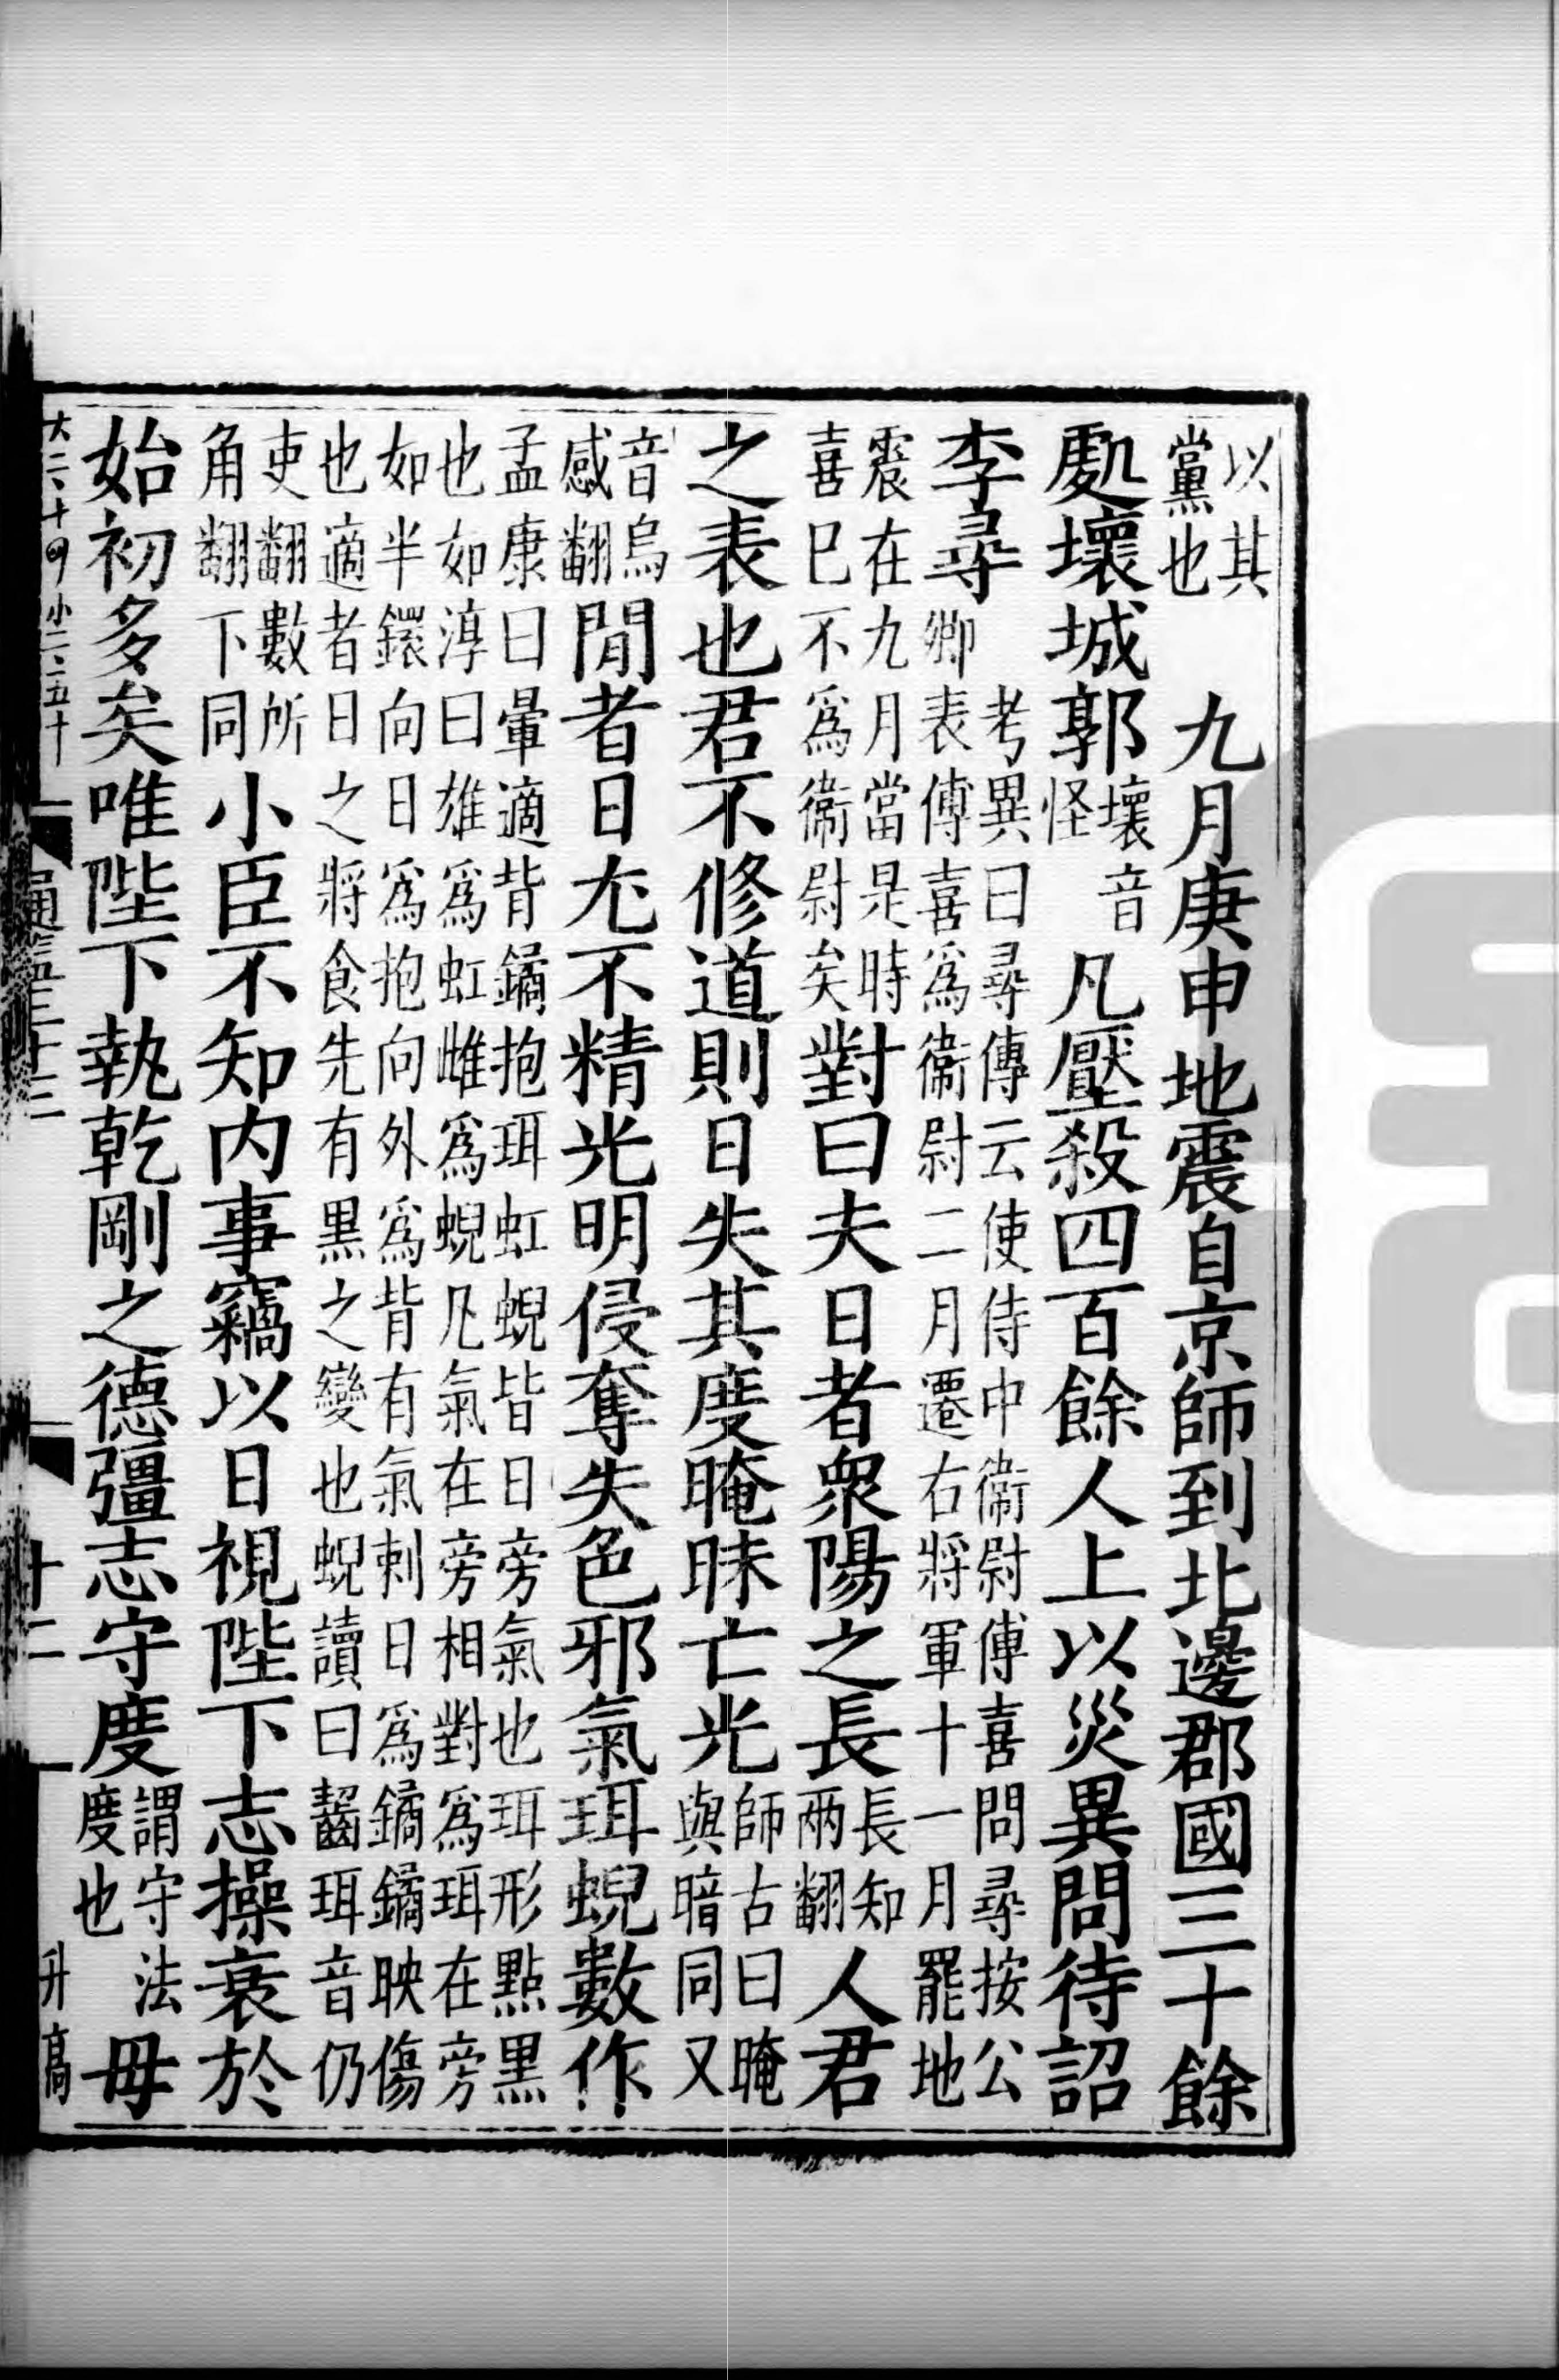 以其黨也　九月庚申地震自京師到北邊郡國三十餘
處壞城郭壞音怪凡壓殺四百餘人上以災異問待詔
李尋考異曰尋傳云使侍中衞尉傅喜問尋按公卿表傅喜爲衞尉二月遷右將軍十一月罷地
震在九月當是時喜巳不爲衞尉矣對曰夫日者衆陽之長長知兩翻人君
之表也君不修道則日失其度晻昧亡光師古曰晻與暗同又
音烏感翻閒者日尢不精光明侵奪失色邪氣珥蜺數作
孟康曰暈適背鐍抱珥虹蜺皆日旁氣也珥形點黑
也如淳曰雄爲虹雌爲蜺凡氣在旁相對爲珥在旁
如半鐶向日爲抱向外爲背有氣刺日爲鐍鐍映傷
也適者日之將食先有黑之變也蜺讀曰齧珥音仍
吏翻數所角翻下同小臣不知内事竊以日視陛下志操衰於
始初多矣唯陛下執乾剛之德彊志守度謂守法度也毋
十二
升高